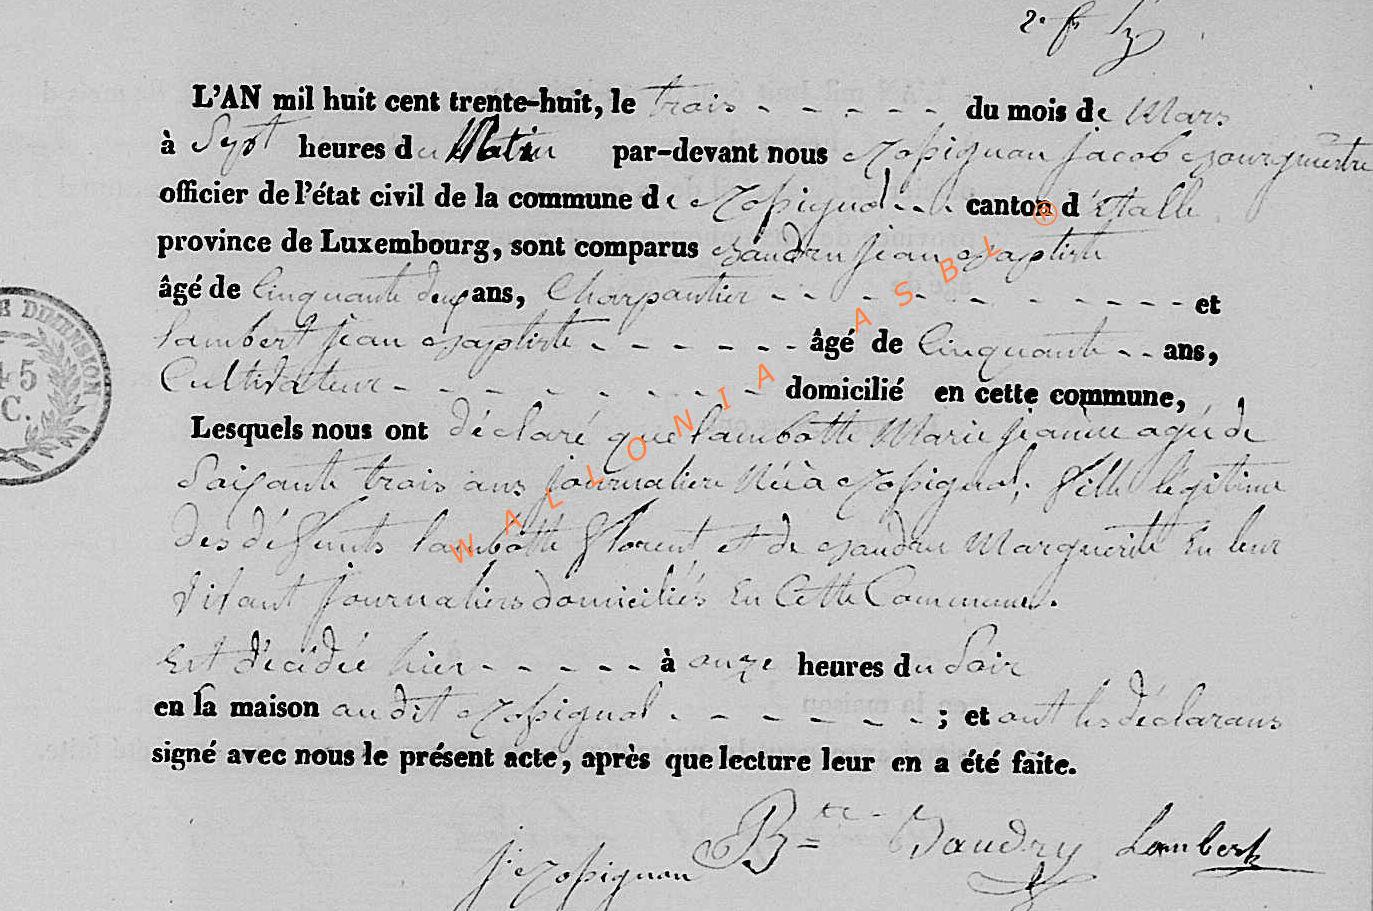 L'AN mil huit cent trente-huit, le trois - - - - - du mois de Mars
à Sept heures du Matin par-devant nous Rossignon Jacob Bourgmestre
officier de l'état civil de la commune de Rossignol - - - canton d'Etalle
province de Luxembourg, sont comparus Baudru jean Baptiste
âgé de Cinquante deux ans, Charpantier - - - - - - - - - - - et
lambert jean Baptiste - - - - - - âgé de Cinquante - - ans,
Cultivateur - - - - - - - - - domicilié en cette commune,
Lesquels nous ont déclaré que lambotte Marie jeanne agée de
Soixante trois ans journaliere Née à Rossignol, fille legitime
des défunts lambotte florent et de Baudru Marguerite En leur
vivant journaliers domiciliés En Cette Commune.
Est décédée hier - - - - - à onze heures du Soir
en la maison audit Rossignol - - - - - - ; et ont les déclarans
signé avec nous le présent acte, après que lecture leur en a été faite.
j Rossignon Bte Baudry Lambert
WALLONIA ASBL ®
DIMENSION
45
C.